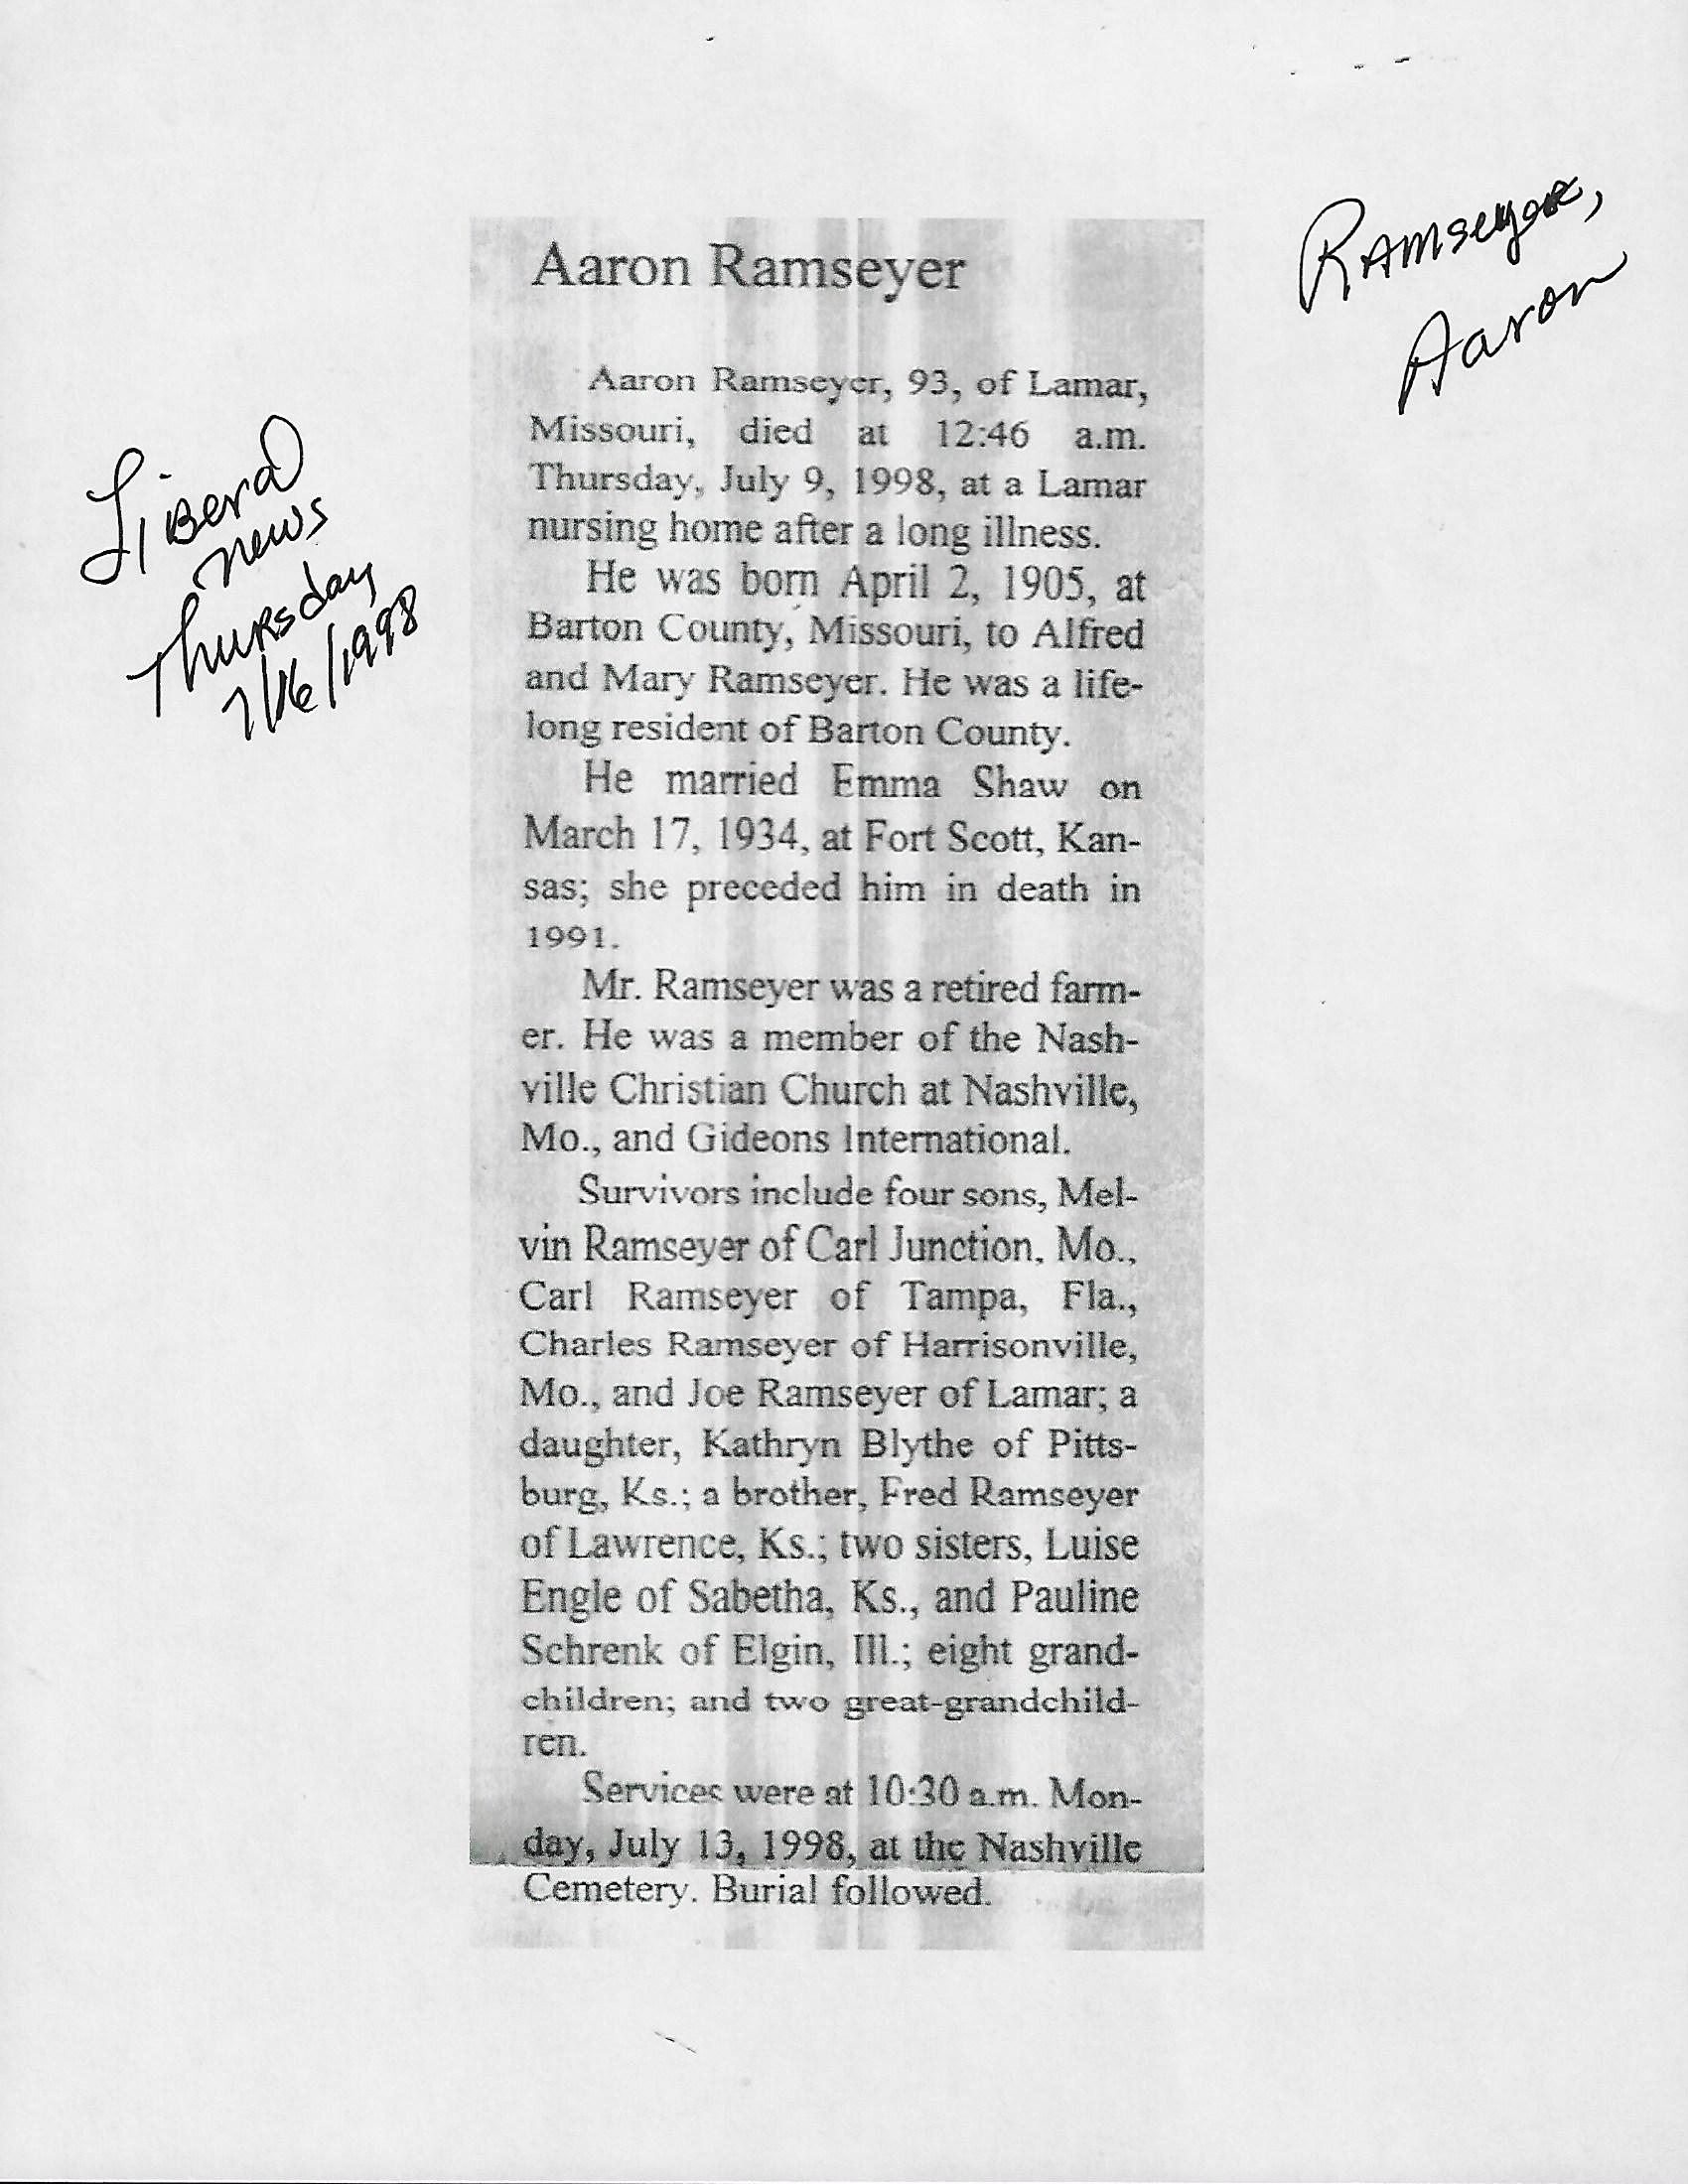 Ramseyer,
Aaron
Liberal
news
Thursday
7/16/1998
Aaron Ramseyer
Aaron Ramseyer, 93, of Lamar,
Missouri, died at 12:46 a.m.
Thursday, July 9, 1998, at a Lamar
nursing home after a long illness.
He was born April 2, 1905, at
Barton County, Missouri, to Alfred
and Mary Ramseyer. He was a life-
long resident of Barton County.
He married Emma Shaw on
March 17, 1934, at Fort Scott, Kan-
sas; she preceded him in death in
1991.
Mr. Ramseyer was a retired farm-
er. He was a member of the Nash-
ville Christian Church at Nashville,
Mo., and Gideons International.
Survivors include four sons, Mel-
vin Ramseyer of Carl Junction, Mo.,
Carl Ramseyer of Tampa, Fla.,
Charles Ramseyer of Harrisonville,
Mo., and Joe Ramseyer of Lamar; a
daughter, Kathryn Blythe of Pitts-
burg, Ks.; a brother, Fred Ramseyer
of Lawrence, Ks.; two sisters, Luise
Engle of Sabetha, Ks., and Pauline
Schrenk of Elgin, Ill.; eight grand-
children; and two great-grandchild-
ren.
Services were at 10:30 a.m. Mon-
day, July 13, 1998, at the Nashville
Cemetery. Burial followed.